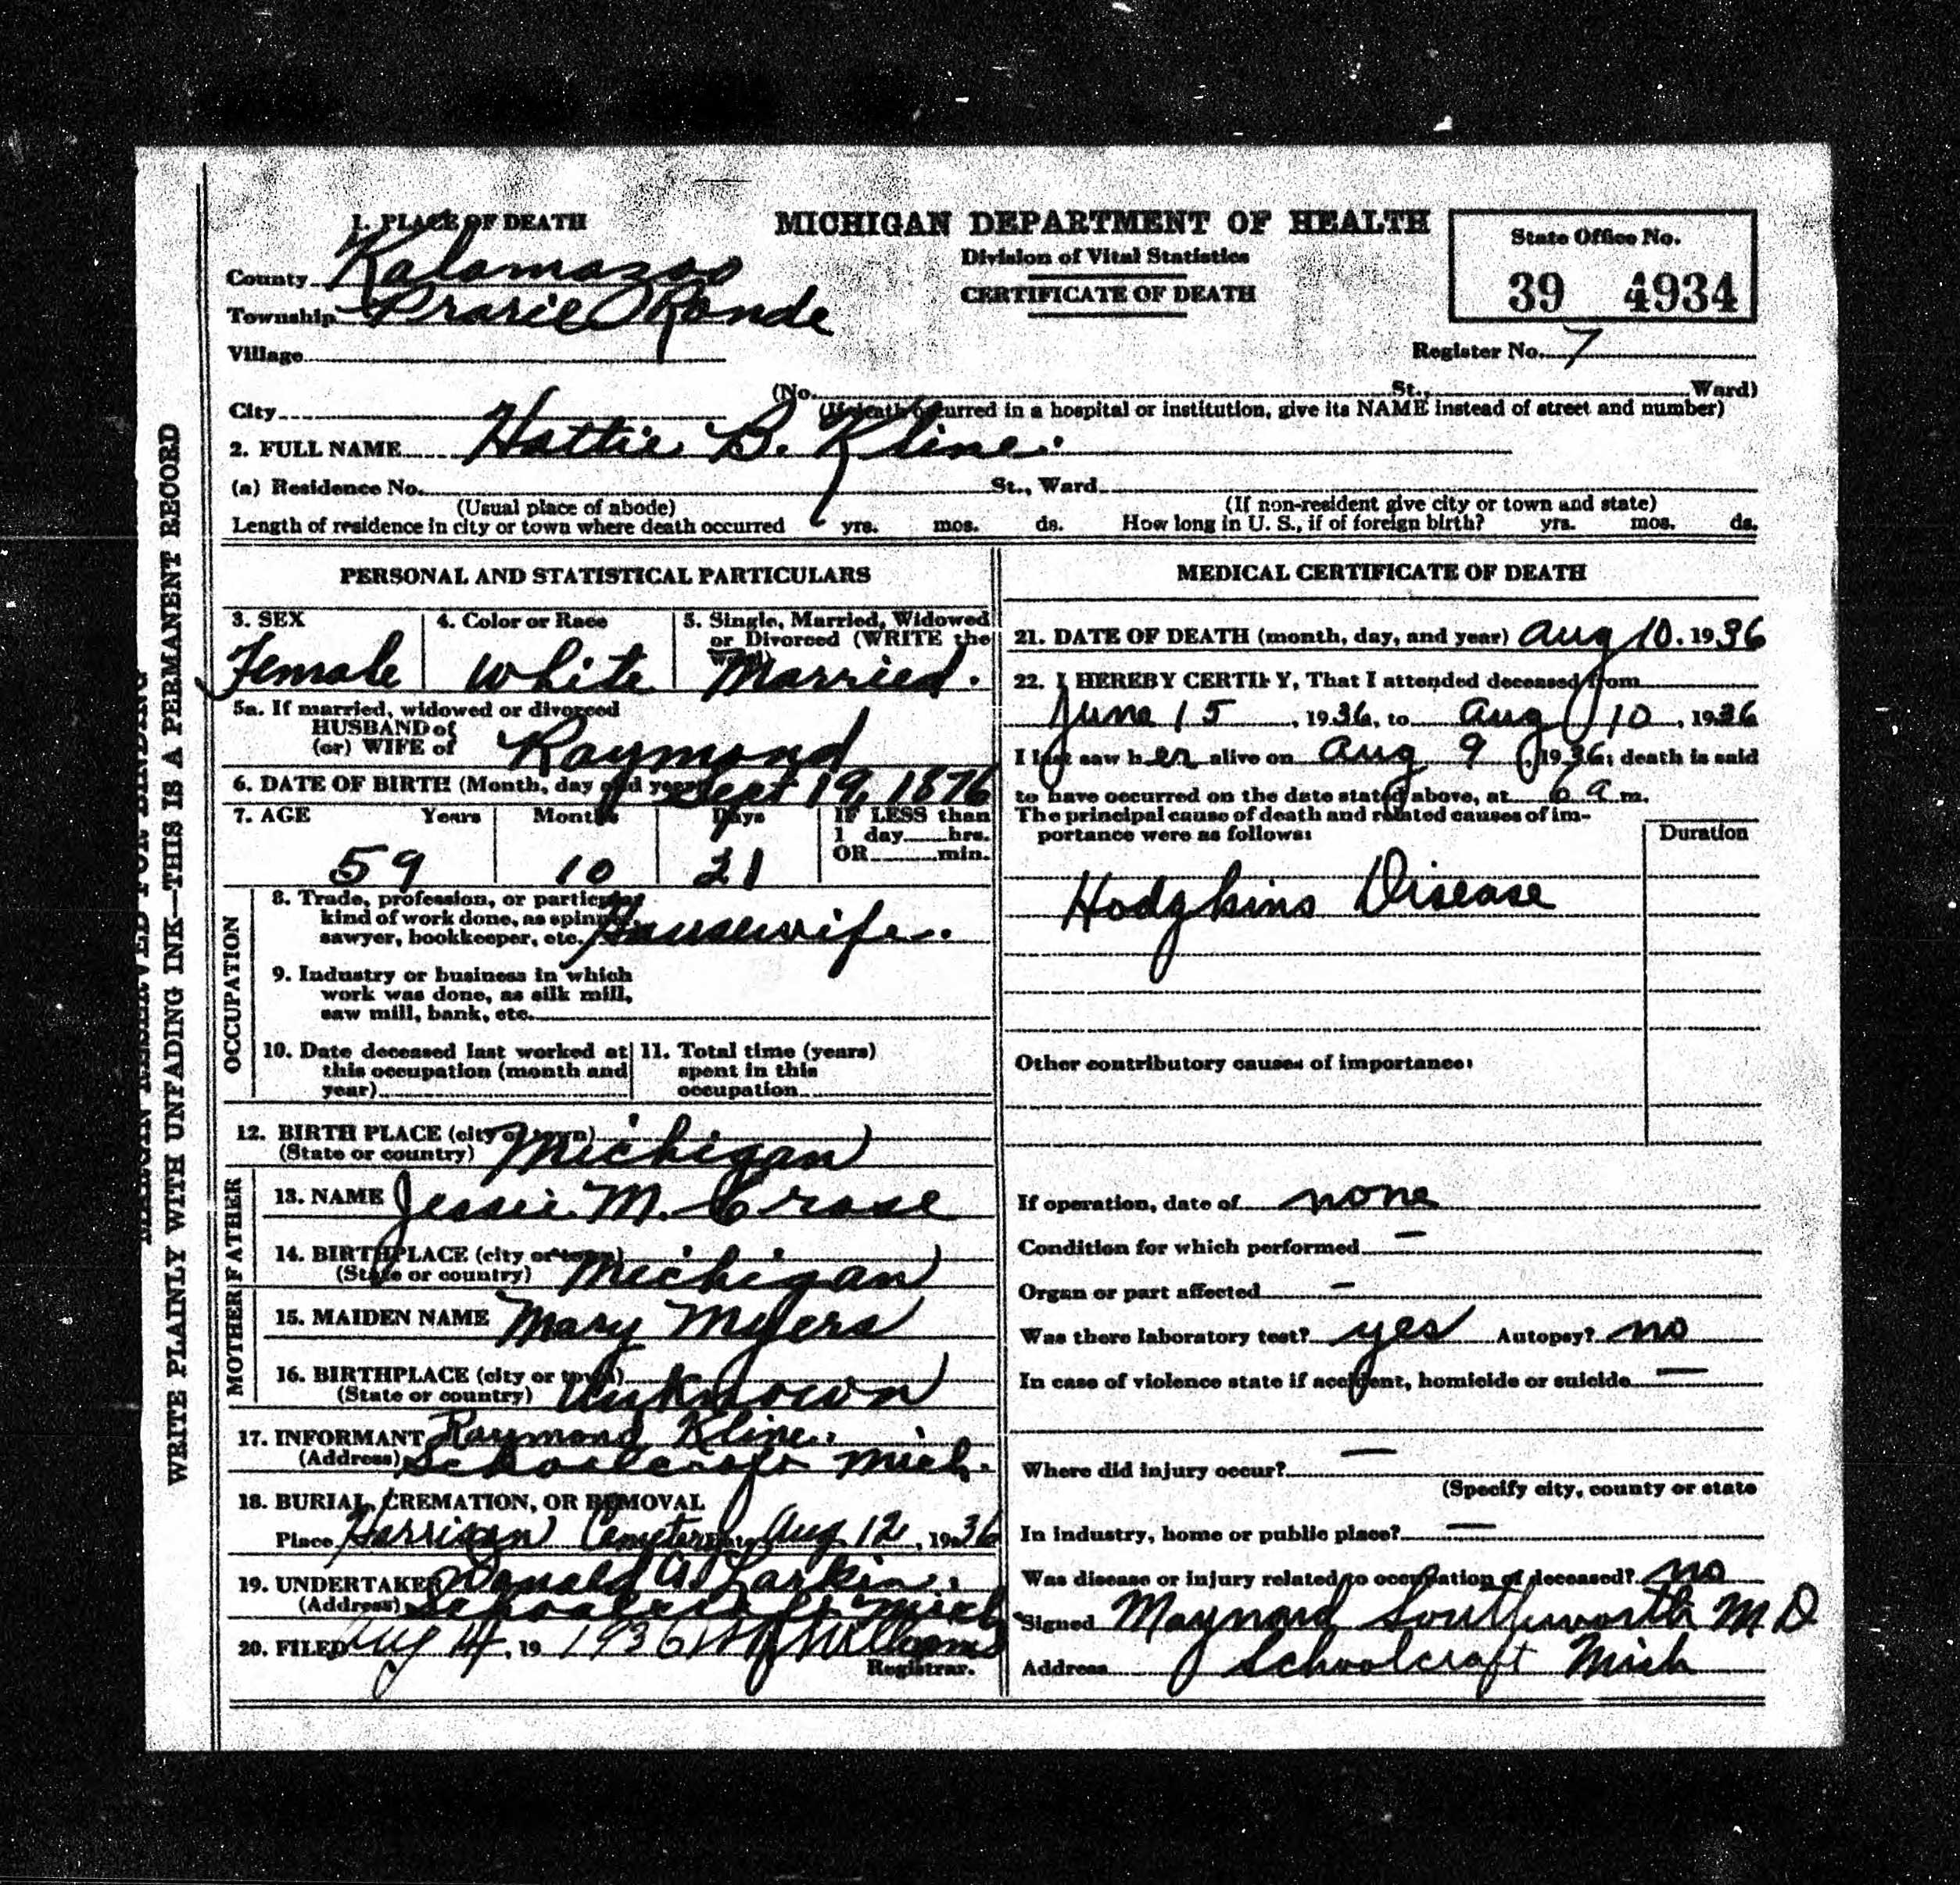 1. PLACE OF DEATH
County Kalamazoo
Township Prarie Ronde
Village
City
MICHIGAN DEPARTMENT OF HEALTH
Division of Vital Statistics
CERTIFICATE OF DEATH
State Office No.
39 4934
Register No. 7
(No. St., Ward)
(If death occurred in a hospital or institution, give its NAME instead of street and number)
2. FULL NAME Hattie B. Kline.
(a) Residence No. St., Ward
(Usual place of abode) (If non-resident give city or town and state)
Length of residence in city or town where death occurred yrs. mos. ds. How long in U. S., if of foreign birth? yrs. mos. ds.
PERSONAL AND STATISTICAL PARTICULARS
3. SEX
Female
4. Color or Race
White
5. Single, Married, Widowed
or Divorced (WRITE the
word)
Married.
5a. If married, widowed or divorced
HUSBAND of
(or) WIFE of Raymond
6. DATE OF BIRTH (Month, day and year) Sept 19, 1876
7. AGE Years Months Days IF LESS than
1 day hrs.
OR min.
59 10 21
OCCUPATION
8. Trade, profession, or particular
kind of work done, as spinner,
sawyer, bookkeeper, etc. Housewife.
9. Industry or business in which
work was done, as silk mill,
saw mill, bank, etc.
10. Date deceased last worked at
this occupation (month and
year)
11. Total time (years)
spent in this
occupation
12. BIRTH PLACE (city or town)
(State or country) Michigan
FATHER
13. NAME Jessie M. Crose
14. BIRTHPLACE (city or town)
(State or country) Michigan
MOTHER
15. MAIDEN NAME Mary Myers
16. BIRTHPLACE (city or town)
(State or country) Unknown
17. INFORMANT Raymond Kline.
(Address) Schoolcraft Mich.
18. BURIAL, CREMATION, OR REMOVAL
Place Harrison Cemetery Date Aug 12, 1936
19. UNDERTAKER Donald A. Larkin.
(Address) Schoolcraft Mich
20. FILED Aug 14, 19 1936 Williams
Registrar.
MEDICAL CERTIFICATE OF DEATH
21. DATE OF DEATH (month, day, and year) Aug 10. 1936
22. I HEREBY CERTIFY, That I attended deceased from
June 15, 1936, to Aug 10, 1936
I last saw her alive on Aug 9, 1936; death is said
to have occurred on the date stated above, at 6 a m.
The principal cause of death and related causes of im-
portance were as follows: Duration
Hodgkins Disease
Other contributory causes of importance:
If operation, date of none
Condition for which performed —
Organ or part affected —
Was there laboratory test? yes Autopsy? no
In case of violence state if accident, homicide or suicide —
Where did injury occur? —
(Specify city, county or state
In industry, home or public place? —
Was disease or injury related to occupation of deceased? no
Signed Maynard Southworth M D
Address Schoolcraft Mich
MARGIN RESERVED FOR BINDING
WRITE PLAINLY WITH UNFADING INK—THIS IS A PERMANENT RECORD